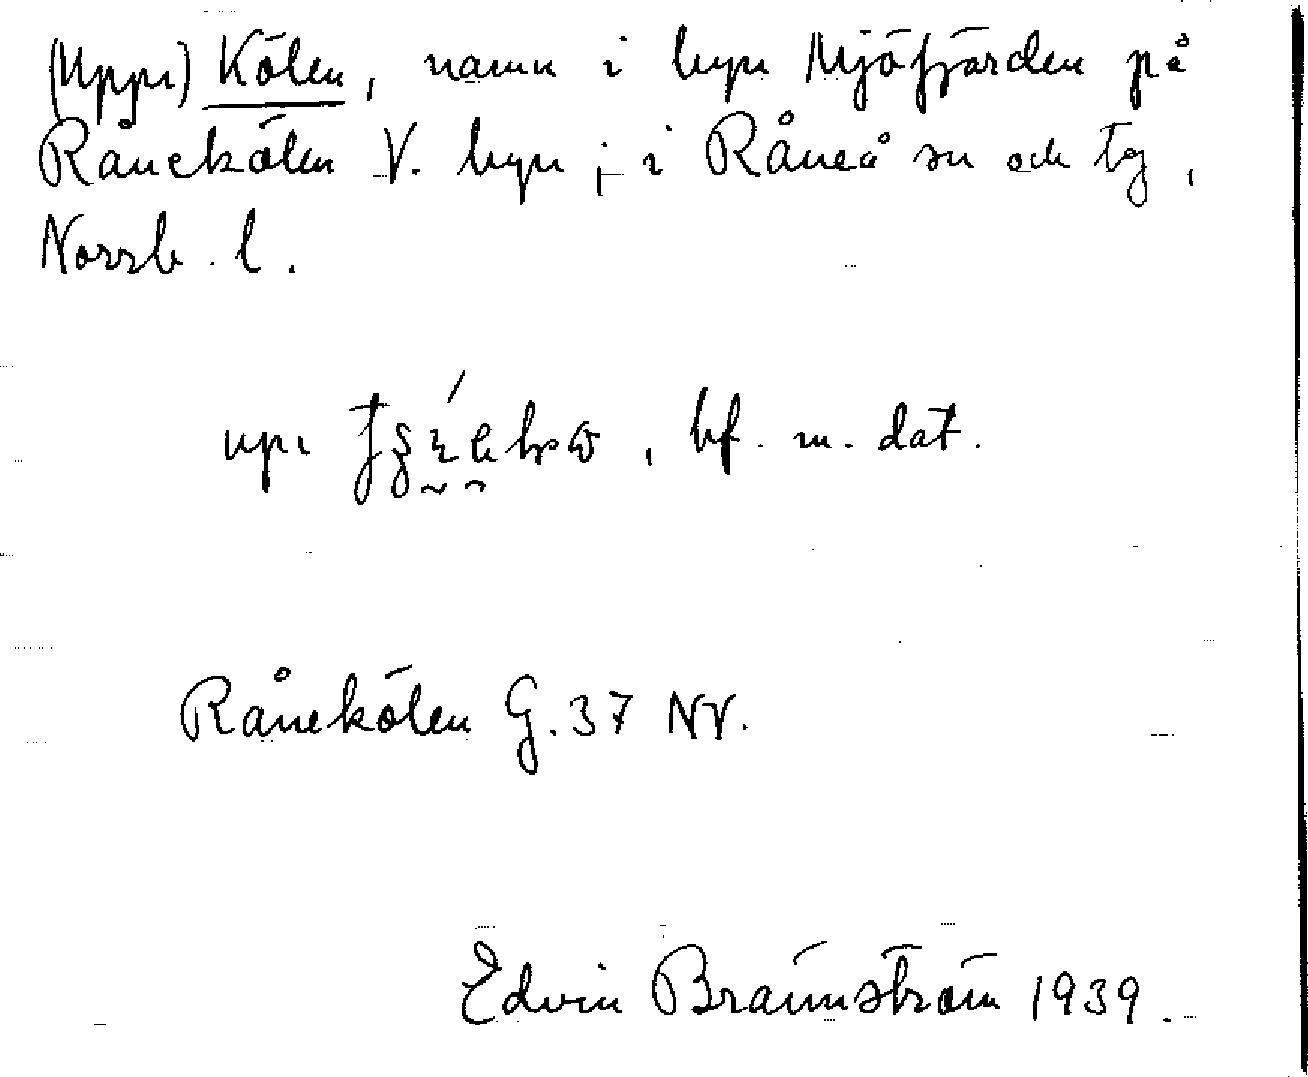 (Uppi) Kölen, namn i byn Mjöfjärden på
Rånekölen V. byn ; i Råneå sn och tg,
Norrb. l.
upi , bf. m. dat.
Rånekölen G. 37 NV.
Edvin Brännström 1939.